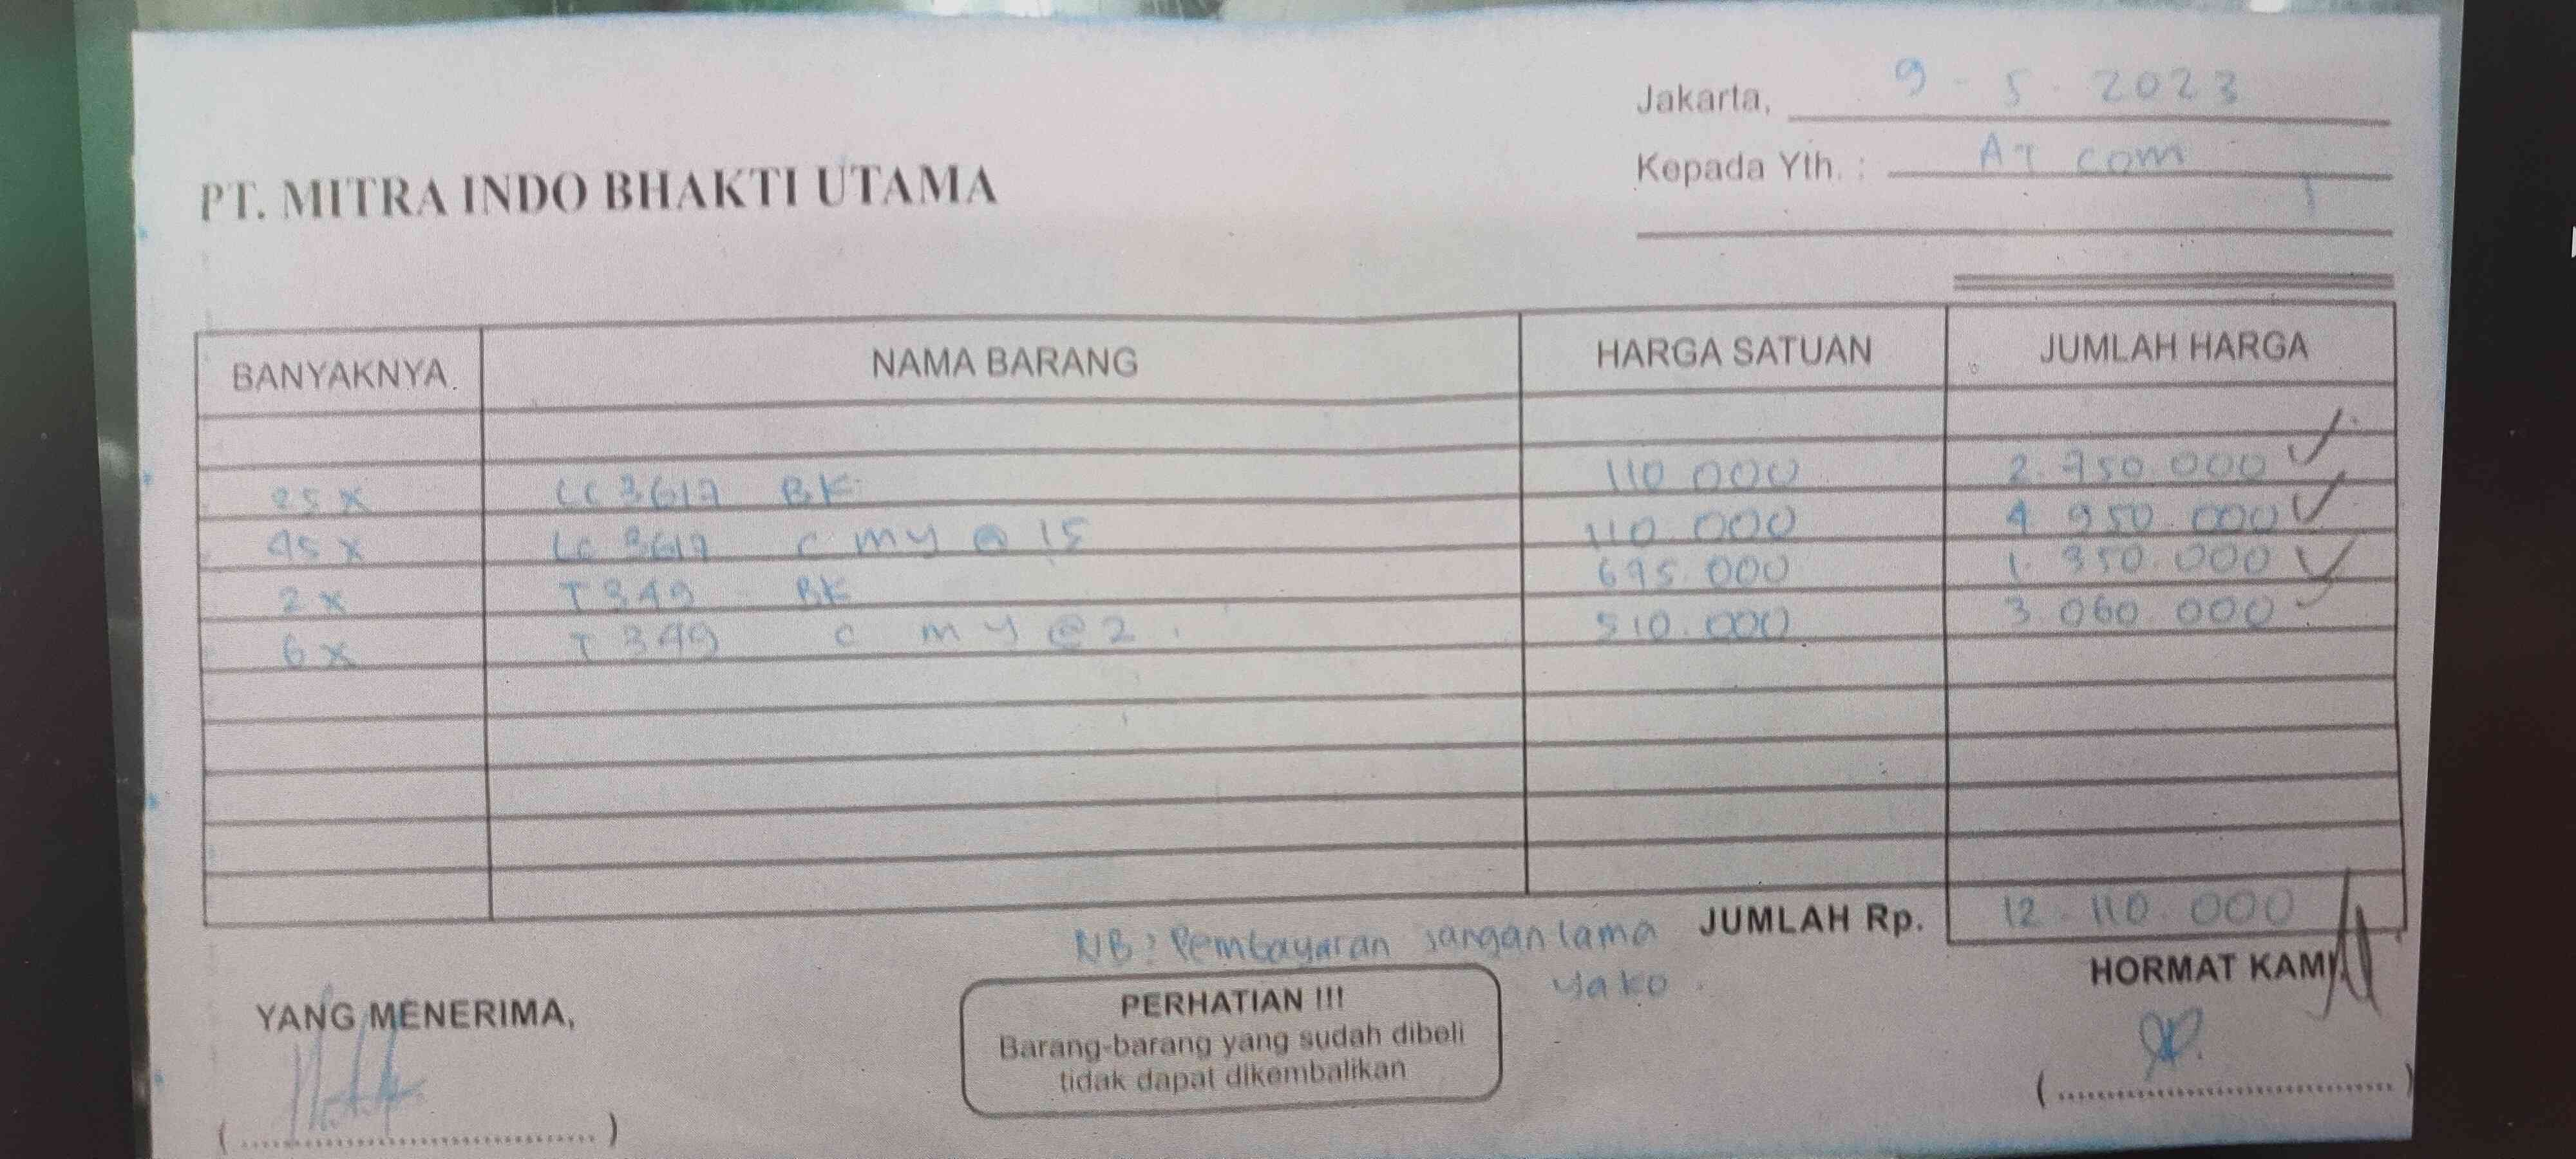 Jakarta, 9 - 5 - 2023
Kepada Yth. : AT com
PT. MITRA INDO BHAKTI UTAMA
BANYAKNYA NAMA BARANG HARGA SATUAN JUMLAH HARGA
25 x LC 3617 BK 110 000 2.750.000
45 x LC 3617 C M Y @ 15 110.000 4 950.000
2 x T 349 BK 695.000 1.350.000
6 x T 349 C M Y @ 2 510.000 3 060 000
JUMLAH Rp. 12.110.000
NB : Pembayaran jangan lama
ya ko.
YANG MENERIMA,
PERHATIAN !!!
Barang-barang yang sudah dibeli
tidak dapat dikembalikan
HORMAT KAMI